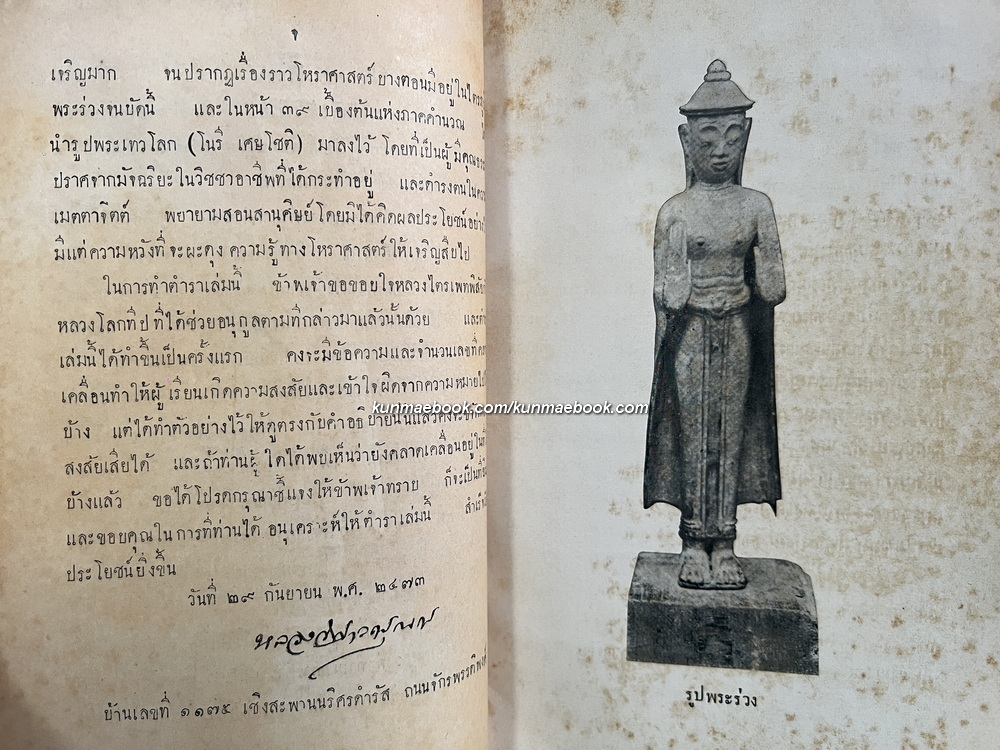 จ
เจริญมาก จนปรากฏเรื่องราวโหราศาสตร์ บางตอนมีอยู่ใน
พระร่วงจนบัดนี้ และในหน้า ๓๙ เบื้องต้นแห่งภาคคำนวณ
นำรูปพระเทวโลก (โนรี เศษโชติ) มาลงไว้ โดยที่เป็นผู้มีคุณ
ปราศจากมัจฉริยะในวิชชาอาชีพที่ได้กระทำอยู่ และดำรงตนใน
เมตตาจิตต์ พยายามสอนสานุศิษย์โดยมิได้คิดผลประโยชน์อย่าง
มีแต่ความหวังที่จะผะดุง ความรู้ทางโหราศาสตร์ให้เจริญสืบไป
ในการทำตำราเล่มนี้ ข้าพเจ้าขอขอบใจหลวงไตรเพท
หลวงโลกทีป ที่ได้ช่วยอนุกูลตามที่กล่าวมาแล้วนั้นด้วย และ
เล่มนี้ได้ทำขึ้นเป็นครั้งแรก คงจะมีข้อความและจำนวนเลขที่
เคลื่อนทำให้ผู้เรียนเกิดความสงสัยและเข้าใจผิดจากความหมาย
บ้าง แต่ได้ทำตัวอย่างไว้ให้ดูตรงกับคำอธิบายนั้นแล้วคงจะ
สงสัยเสียได้ และถ้าท่านผู้ใดได้พบเห็นว่ายังคลาดเคลื่อนอยู่ใน
บ้างแล้ว ขอได้โปรดกรุณาชี้แจงให้ข้าพเจ้าทราบ ก็จะเป็นที่
และขอบคุณในการที่ท่านได้อนุเคราะห์ให้ตำราเล่มนี้ สำเร็จ
ประโยชน์ยิ่งขึ้น
วันที่ ๒๙ กันยายน พ.ศ. ๒๔๗๓
บ้านเลขที่ ๑๑๗๕ เชิงสะพานนริศรดำรัส ถนนจักรพรรดิพงศ์
kunmaebook.com/kunmaebook.com
รูปพระร่วง